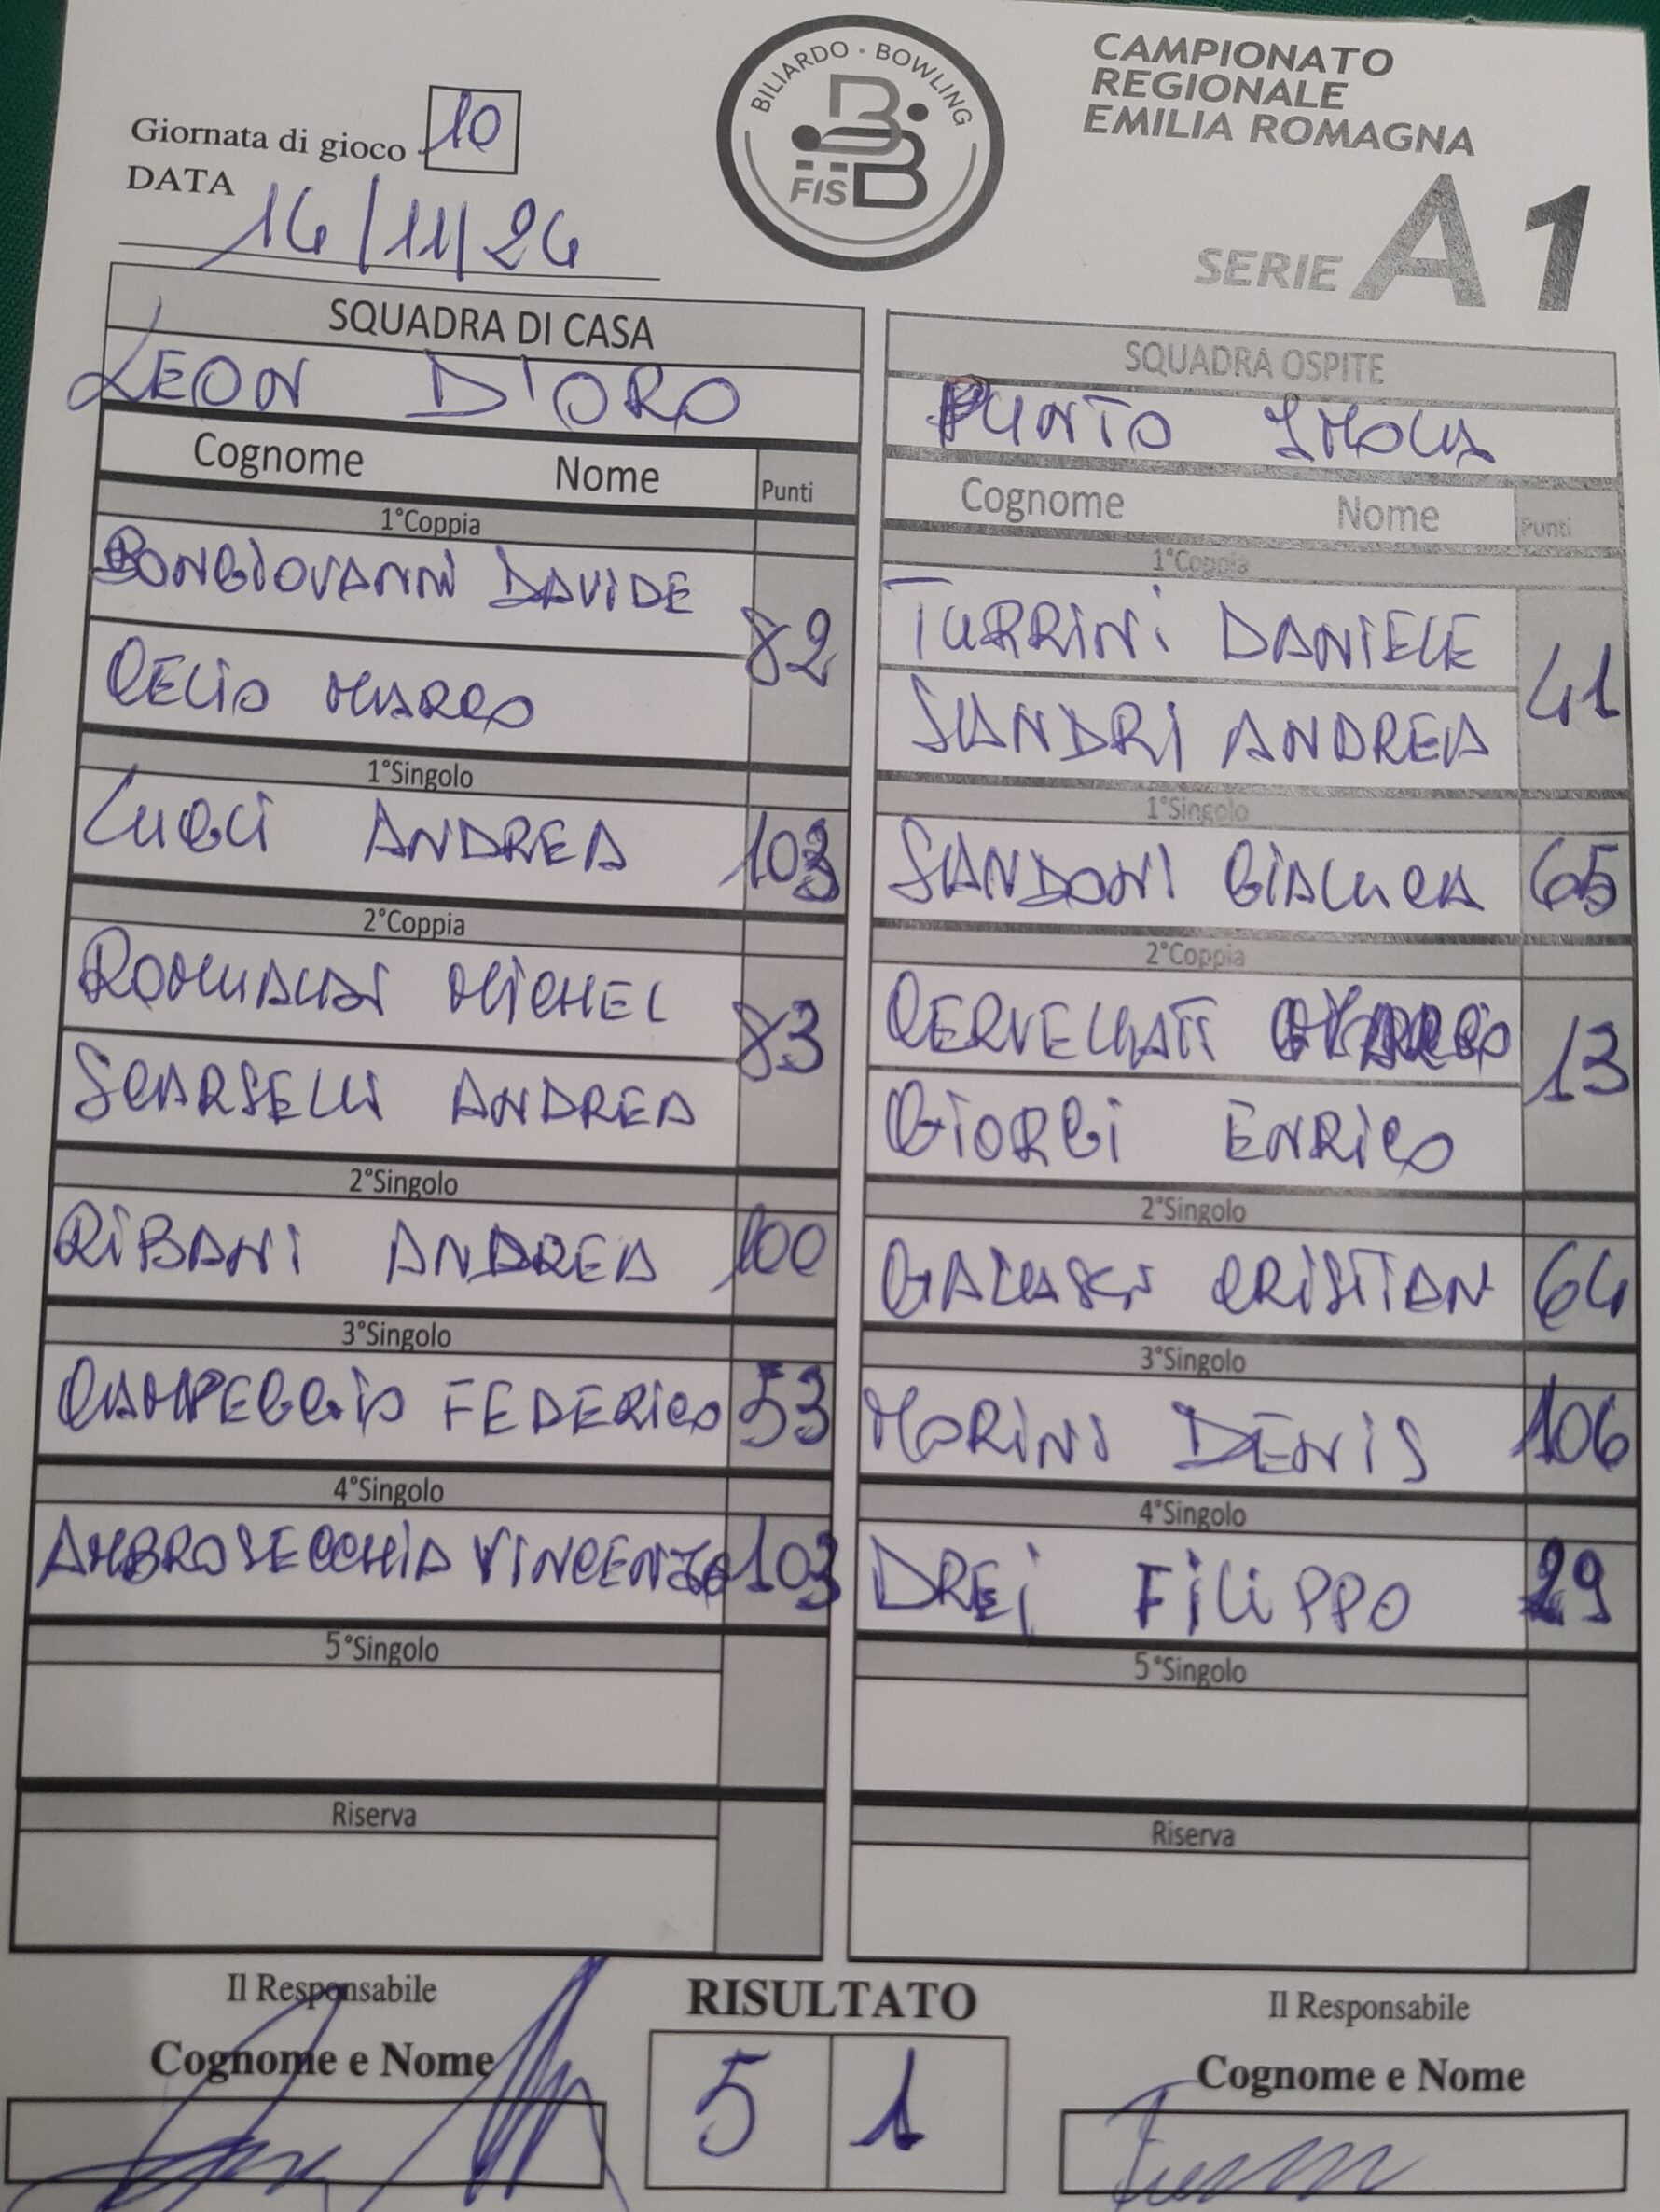 BILIARDO · BOWLING
FISBB
CAMPIONATO
REGIONALE
EMILIA ROMAGNA
SERIE A1
Giornata di gioco 10
DATA 14/11/24
SQUADRA DI CASA
LEON D'ORO
Cognome Nome Punti
1°Coppia
BONGIOVANNI DAVIDE
CELIO MARCO
82
1°Singolo
LUGLI ANDREA 103
2°Coppia
ROMUALDI MICHEL
SCARSELLI ANDREA
83
2°Singolo
RIBANI ANDREA 100
3°Singolo
CAMPEGGIO FEDERICO 53
4°Singolo
AMBROSECCHIA VINCENZO 103
5°Singolo
Riserva
SQUADRA OSPITE
PUNTO IMOLA
Cognome Nome Punti
1°Coppia
TURRINI DANIELE
SANDRI ANDREA
41
1°Singolo
SANDONI GIALUCA 65
2°Coppia
CERVELLATI
GIORGI ENRICO
13
2°Singolo
GALASSI CRISTIAN 64
3°Singolo
MORINI DENIS 106
4°Singolo
DREI FILIPPO 29
5°Singolo
Riserva
Il Responsabile
Cognome e Nome
RISULTATO
5 1
Il Responsabile
Cognome e Nome